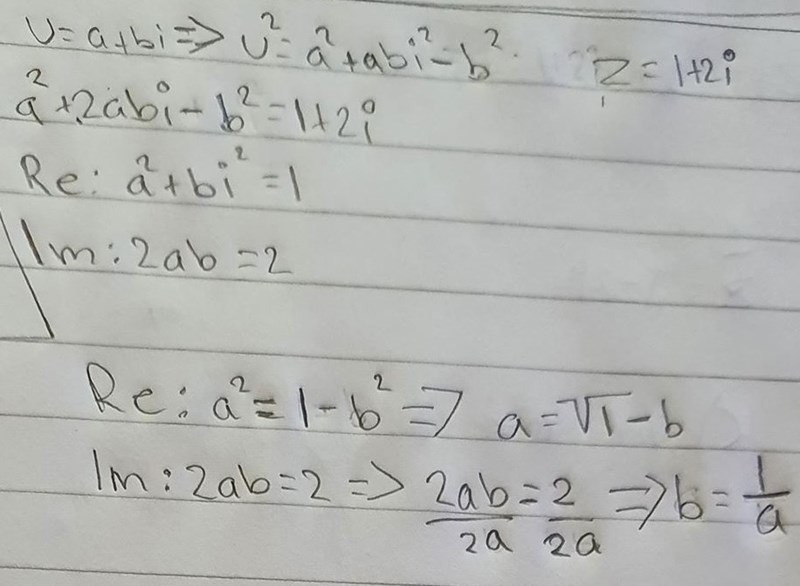 U=a+bi⇒ U²=a²+abi²-b². Z=1+2i
a²+2abi-b²=1+2i
Re: a²+bi²=1
Im: 2ab=2
Re: a²=1-b²⇒ a=√1-b
Im: 2ab=2 ⇒ 2ab/2a=2/2a ⇒b=1/a